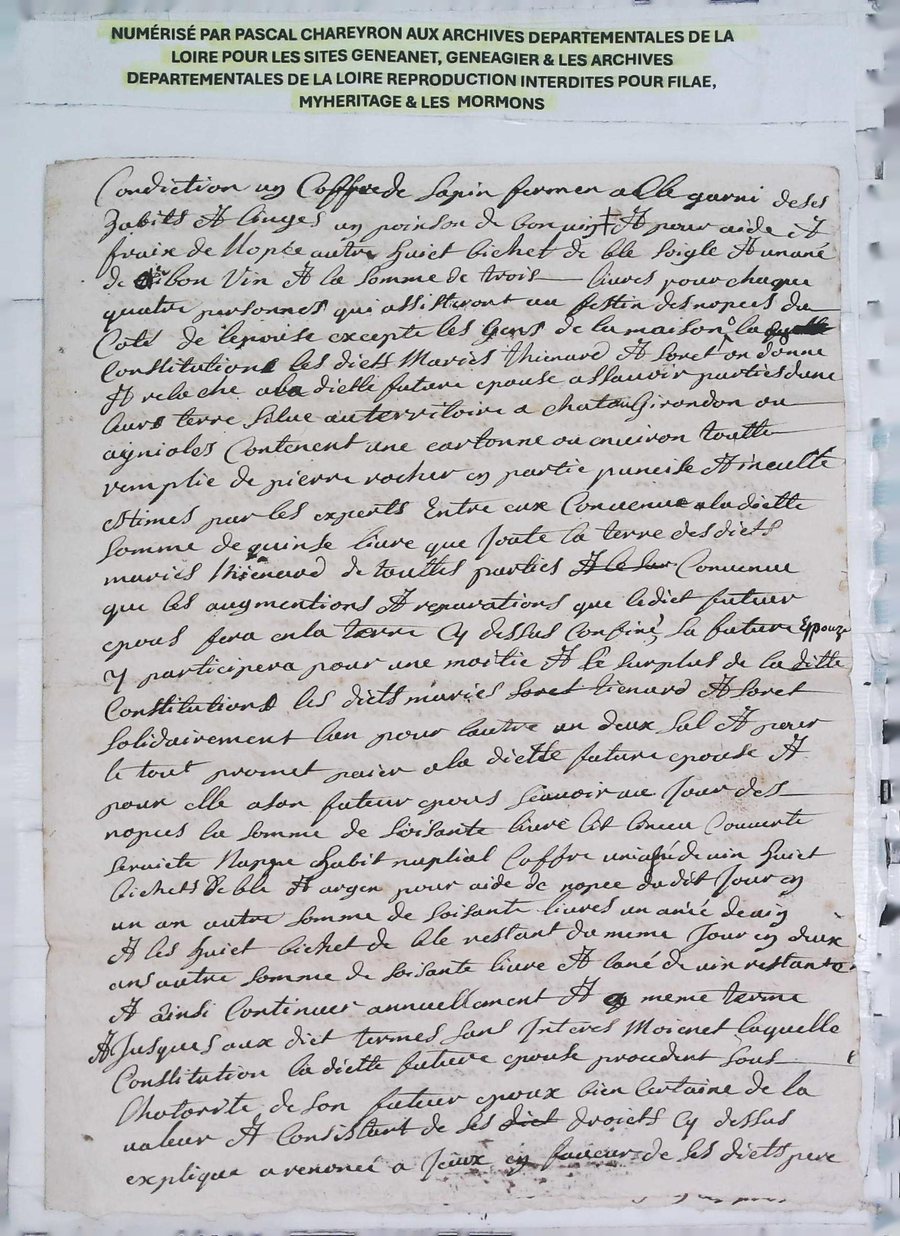 NUMÉRISÉ PAR PASCAL CHAREYRON AUX ARCHIVES DEPARTEMENTALES DE LA
LOIRE POUR LES SITES GENEANET, GENEAGIER & LES ARCHIVES
DEPARTEMENTALES DE LA LOIRE REPRODUCTION INTERDITES POUR FILAE,
MYHERITAGE & LES MORMONS
Condiction un Coffre de sapin fermen a Clle garni de ses
habits et linges un poinson de bon vin et pour aide et
fraix de Nopce autre huict bichet de ble soigle et un ané
de bon vin et la somme de trois livres pour chaque
quatre personnes qui assisteront au festin des nopces du
Coté de lepouse excepte les Gens de la maison la
Constitution les diets Mariés thienard et soret on donne
et relache a la diette future epouse assauoir parties dune
terre situe au territoire a chatau Girondon ou
agnioles Contenent une cartonne ou enuiron toutte
remplie de pierre rocher en partie et inculte
estimes par les experts Entre eux Conuenue a la diette
somme de quinse liure que Joute la terre des diets
mariés thienard de touttes parties et le sur Conuenue
que les augmentions et reparations que le dict futur
epous fera en la terre Cy dessus Confiné, la future Eppouze
y participera pour une moitie et le surplus de la ditte
Constitution les diets mariés soret tienard et soret
solidairement lun pour lautre un deux sul et pour
le tout promet paier a la diette future epouse et
pour elle a son futur epous scauoir au Jour des
nopces la somme de soisante liure lit Couuerte
seruiete Nappe habit nuptial Coffre un ané de uin huict
bichets de ble et argen pour aide de nopce du dit Jour en
un an autre somme de soisante liures un ané de uin
et les huict bichet de ble restant du meme Jour en deux
ans autre somme de soisante liure et lané de uin restant
et ainsi Continuer annuellament et meme terme
et Jusques aux dict termes sans Interes Moienet laquelle
Constitution la diette future epouse procedent sous
lhotorite de son futur epoux bien Certaine de la
valeur et Consistant de ses dict droicts Cy dessus
explique a renoncé a Jceux en faueur de ses diets pere